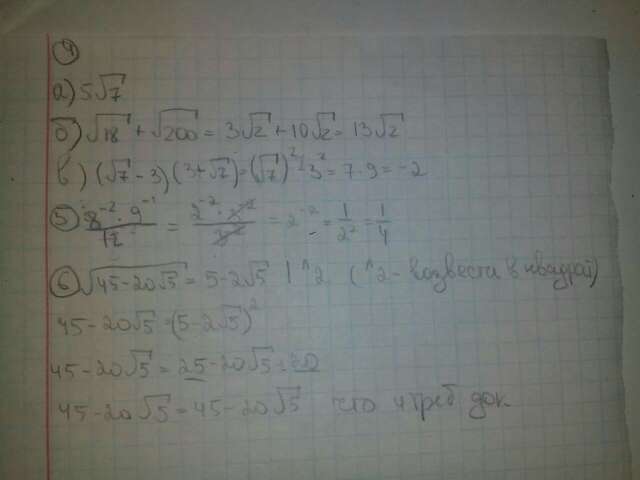 4
а) 5√7
б) √18 + √200 = 3√2 + 10√2 = 13√2
в) (√7 - 3)(3+√7) = (√7)² - 3² = 7 · 9 = -2
5 8⁻² · 9⁻¹ / 12 = 2⁻² · / = 2⁻² = 1/2² = 1/4
6 √45-20√5 = 5-2√5 | ^2 (^2 - возвести в квадрат)
45-20√5 = (5-2√5)²
45-20√5 = 25-20√5+20
45-20√5 = 45-20√5 что и треб док.